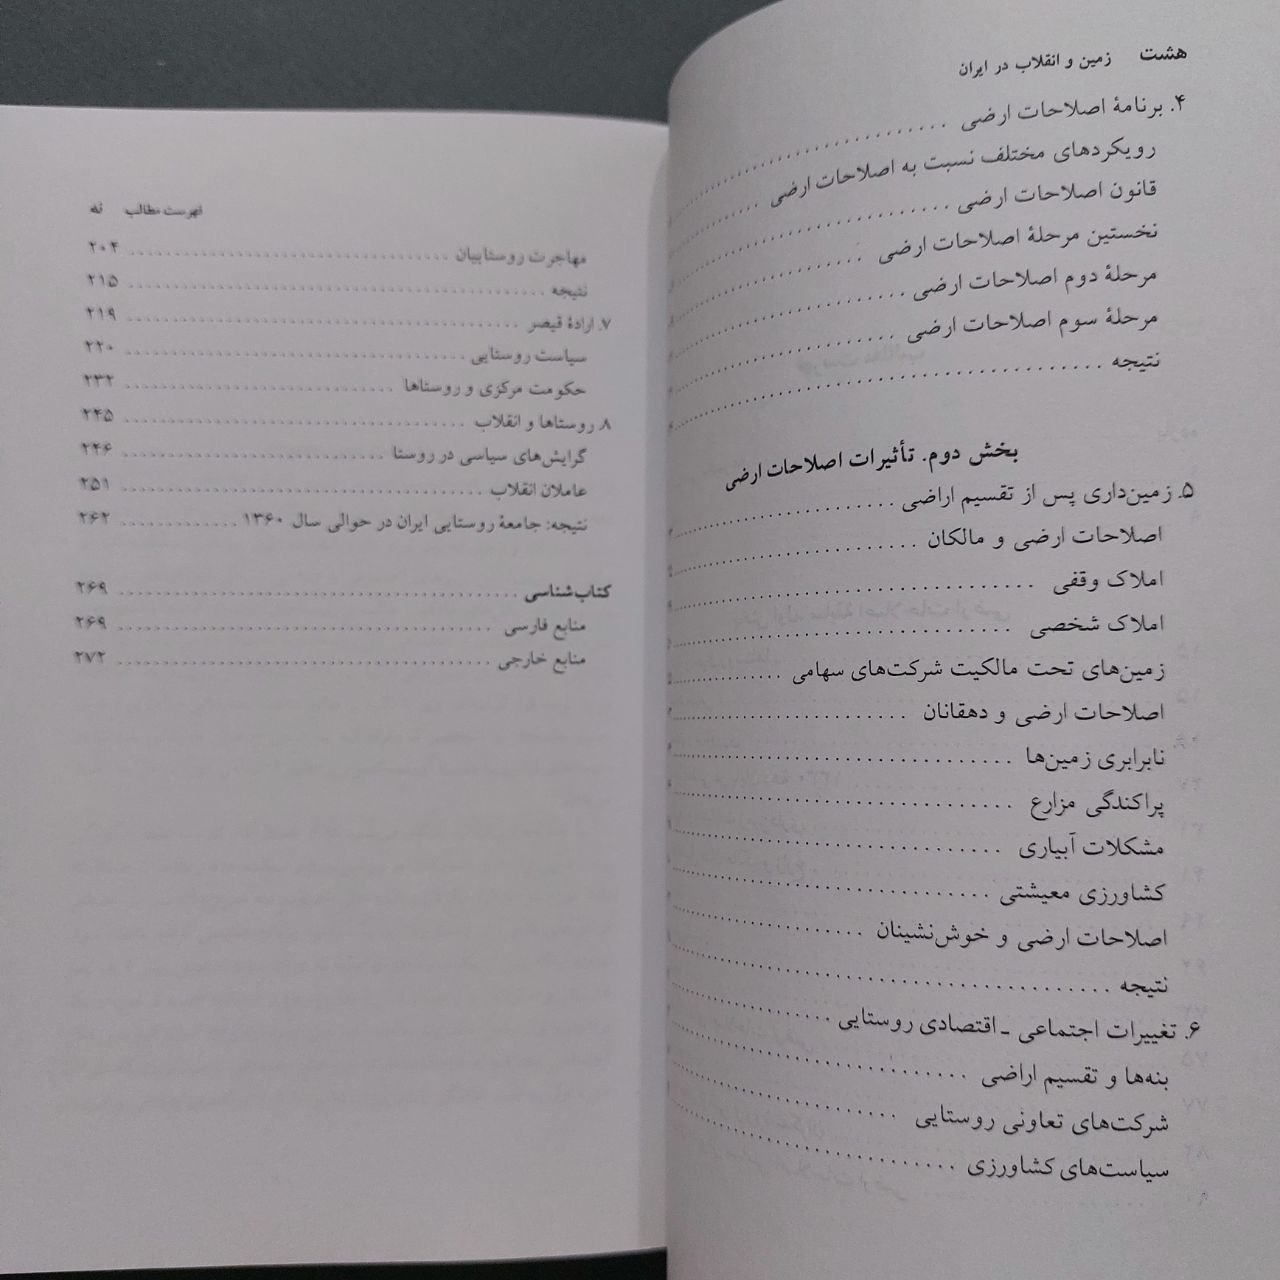 هشت    زمین و انقلاب در ایران
۴. برنامهٔ اصلاحات ارضی
رویکردهای مختلف نسبت به اصلاحات ارضی
قانون اصلاحات ارضی
نخستین مرحلهٔ اصلاحات ارضی
مرحلهٔ دوم اصلاحات ارضی
مرحلهٔ سوم اصلاحات ارضی
نتیجه
بخش دوم. تأثیرات اصلاحات ارضی
۵. زمین‌داری پس از تقسیم اراضی
اصلاحات ارضی و مالکان
املاک وقفی
املاک شخصی
زمین‌های تحت مالکیت شرکت‌های سهامی
اصلاحات ارضی و دهقانان
نابرابری زمین‌ها
پراکندگی مزارع
مشکلات آبیاری
کشاورزی معیشتی
اصلاحات ارضی و خوش‌نشینان
نتیجه
۶. تغییرات اجتماعی ـ اقتصادی روستایی
بنه‌ها و تقسیم اراضی
شرکت‌های تعاونی روستایی
سیاست‌های کشاورزی
فهرست مطالب    نه
مهاجرت روستاییان ۲۰۴
نتیجه ۲۱۵
۷. ارادهٔ قیصر ۲۱۹
سیاست روستایی ۲۲۰
حکومت مرکزی و روستاها ۲۳۲
۸. روستاها و انقلاب ۲۴۵
گرایش‌های سیاسی در روستا ۲۴۶
عاملان انقلاب ۲۵۱
نتیجه: جامعهٔ روستایی ایران در حوالی سال ۱۳۶۰ ۲۶۲
کتاب‌شناسی ۲۶۹
منابع فارسی ۲۶۹
منابع خارجی ۲۷۲